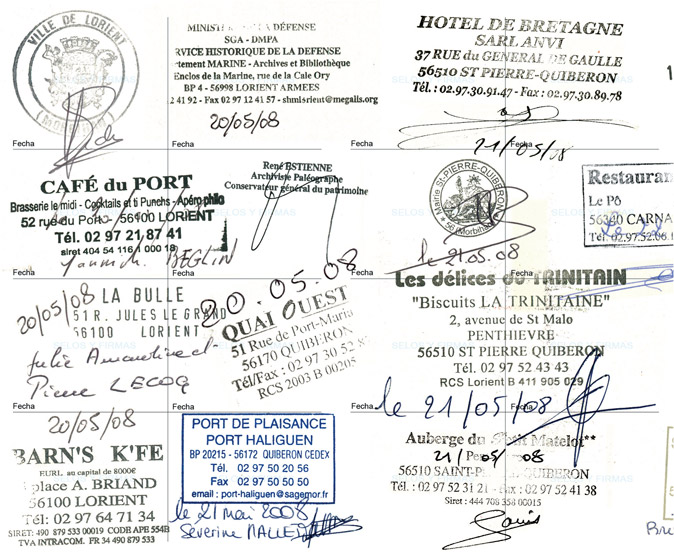 VILLE DE LORIENT
(Morbihan)
Fecha
MINISTÈRE DE LA DÉFENSE
SGA - DMPA
RVICE HISTORIQUE DE LA DEFENSE
rtement MARINE - Archives et Bibliothèque
Enclos de la Marine, rue de la Cale Ory
BP 4 - 56998 LORIENT ARMEES
2 41 92 - Fax 02 97 12 41 57 - shmlorient@megalis.org
20/05/08
Fecha
HOTEL DE BRETAGNE
SARL ANVI
37 RUE du GENERAL DE GAULLE
56510 ST PIERRE-QUIBERON
Tél. : 02.97.30.91.47 - Fax : 02.97.30.89.78
21/05/08
Fecha
Fecha
1
CAFÉ du PORT
Brasserie le midi - Cocktails et ti Punchs - Apéro philo
52 rue du Port - 56100 LORIENT
Tél. 02 97 21 87 41
siret 404 54 116 1 000 18
Yannick BEGLIN
Fecha
René ESTIENNE
Archiviste Paléographe
Conservateur général du patrimoine
20.05.08
Fecha
Mairie St-PIERRE-QUIBERON
56 Morbihan
le 21.05.08
Fecha
Fecha
Restauran
Le Pô
56380 CARNA
Tél. 02.97.52.06.
BELOS Y FIRMAS
20/05/08
LA BULLE
51 R. JULES LE GRAND
56100 LORIENT
Pierre LECOQ
Fecha
QUAI OUEST
51 Rue de Port-Maria
56170 QUIBERON
Tél/Fax : 02 97 30 52 8
RCS 2003 B 00205
Fecha
Les délices du TRINITAIN
"Biscuits LA TRINITAINE"
2, avenue de St Malo
PENTHIEVRE
56510 ST PIERRE QUIBERON
Tél. 02 97 52 43 43
RCS Lorient B 411 905 029
le 21/05/08
Fecha
Fecha
20/05/08
BARN'S K'FE
EURL au capital de 8000€
place A. BRIAND
56100 LORIENT
Tél : 02 97 64 71 34
SIRET: 490 879 533 00019 CODE APE 554B
TVA INTRACOM. FR 34 490 879 533
PORT DE PLAISANCE
PORT HALIGUEN
BP 20215 - 56172 QUIBERON CEDEX
Tél. 02 97 50 20 56
Fax 02 97 50 50 50
email : port-haliguen@sagemor.fr
le 21 mai 2008
Séverine MALLET
Auberge du Petit Matelot**
21/05/08
56510 SAINT-PIERRE QUIBERON
Tél. : 02 97 52 31 21 - Fax 02 97 52 41 38
Siret : 444 708 358 00015